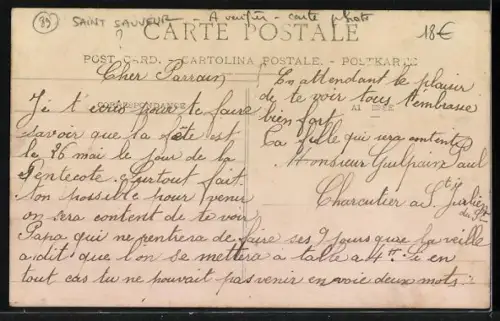 89
SAINT SAUVEUR - A vérifier - carte photo
?
18€
CARTE POSTALE
POST CARD. - CARTOLINA POSTALE. - POSTKARTE
CORRESPONDANCE
Cher Parrain
Je t'écris pour te faire
savoir que la fête est
le 26 mai le jour de la
Pentecote. Surtout fait
ton possible pour venir
on sera content de te voir
Papa qui ne rentrera de faire ses 9 jours que la veille
a dit que l'on se mettera à table à 4h. Si en
tout cas tu ne pouvait pas venir envoie deux mots.
En attendant le plaisir
de te voir tous t'embrasse
bien fort.
Ta fille qui sera contente
Monsieur Paul
Charcutier a St